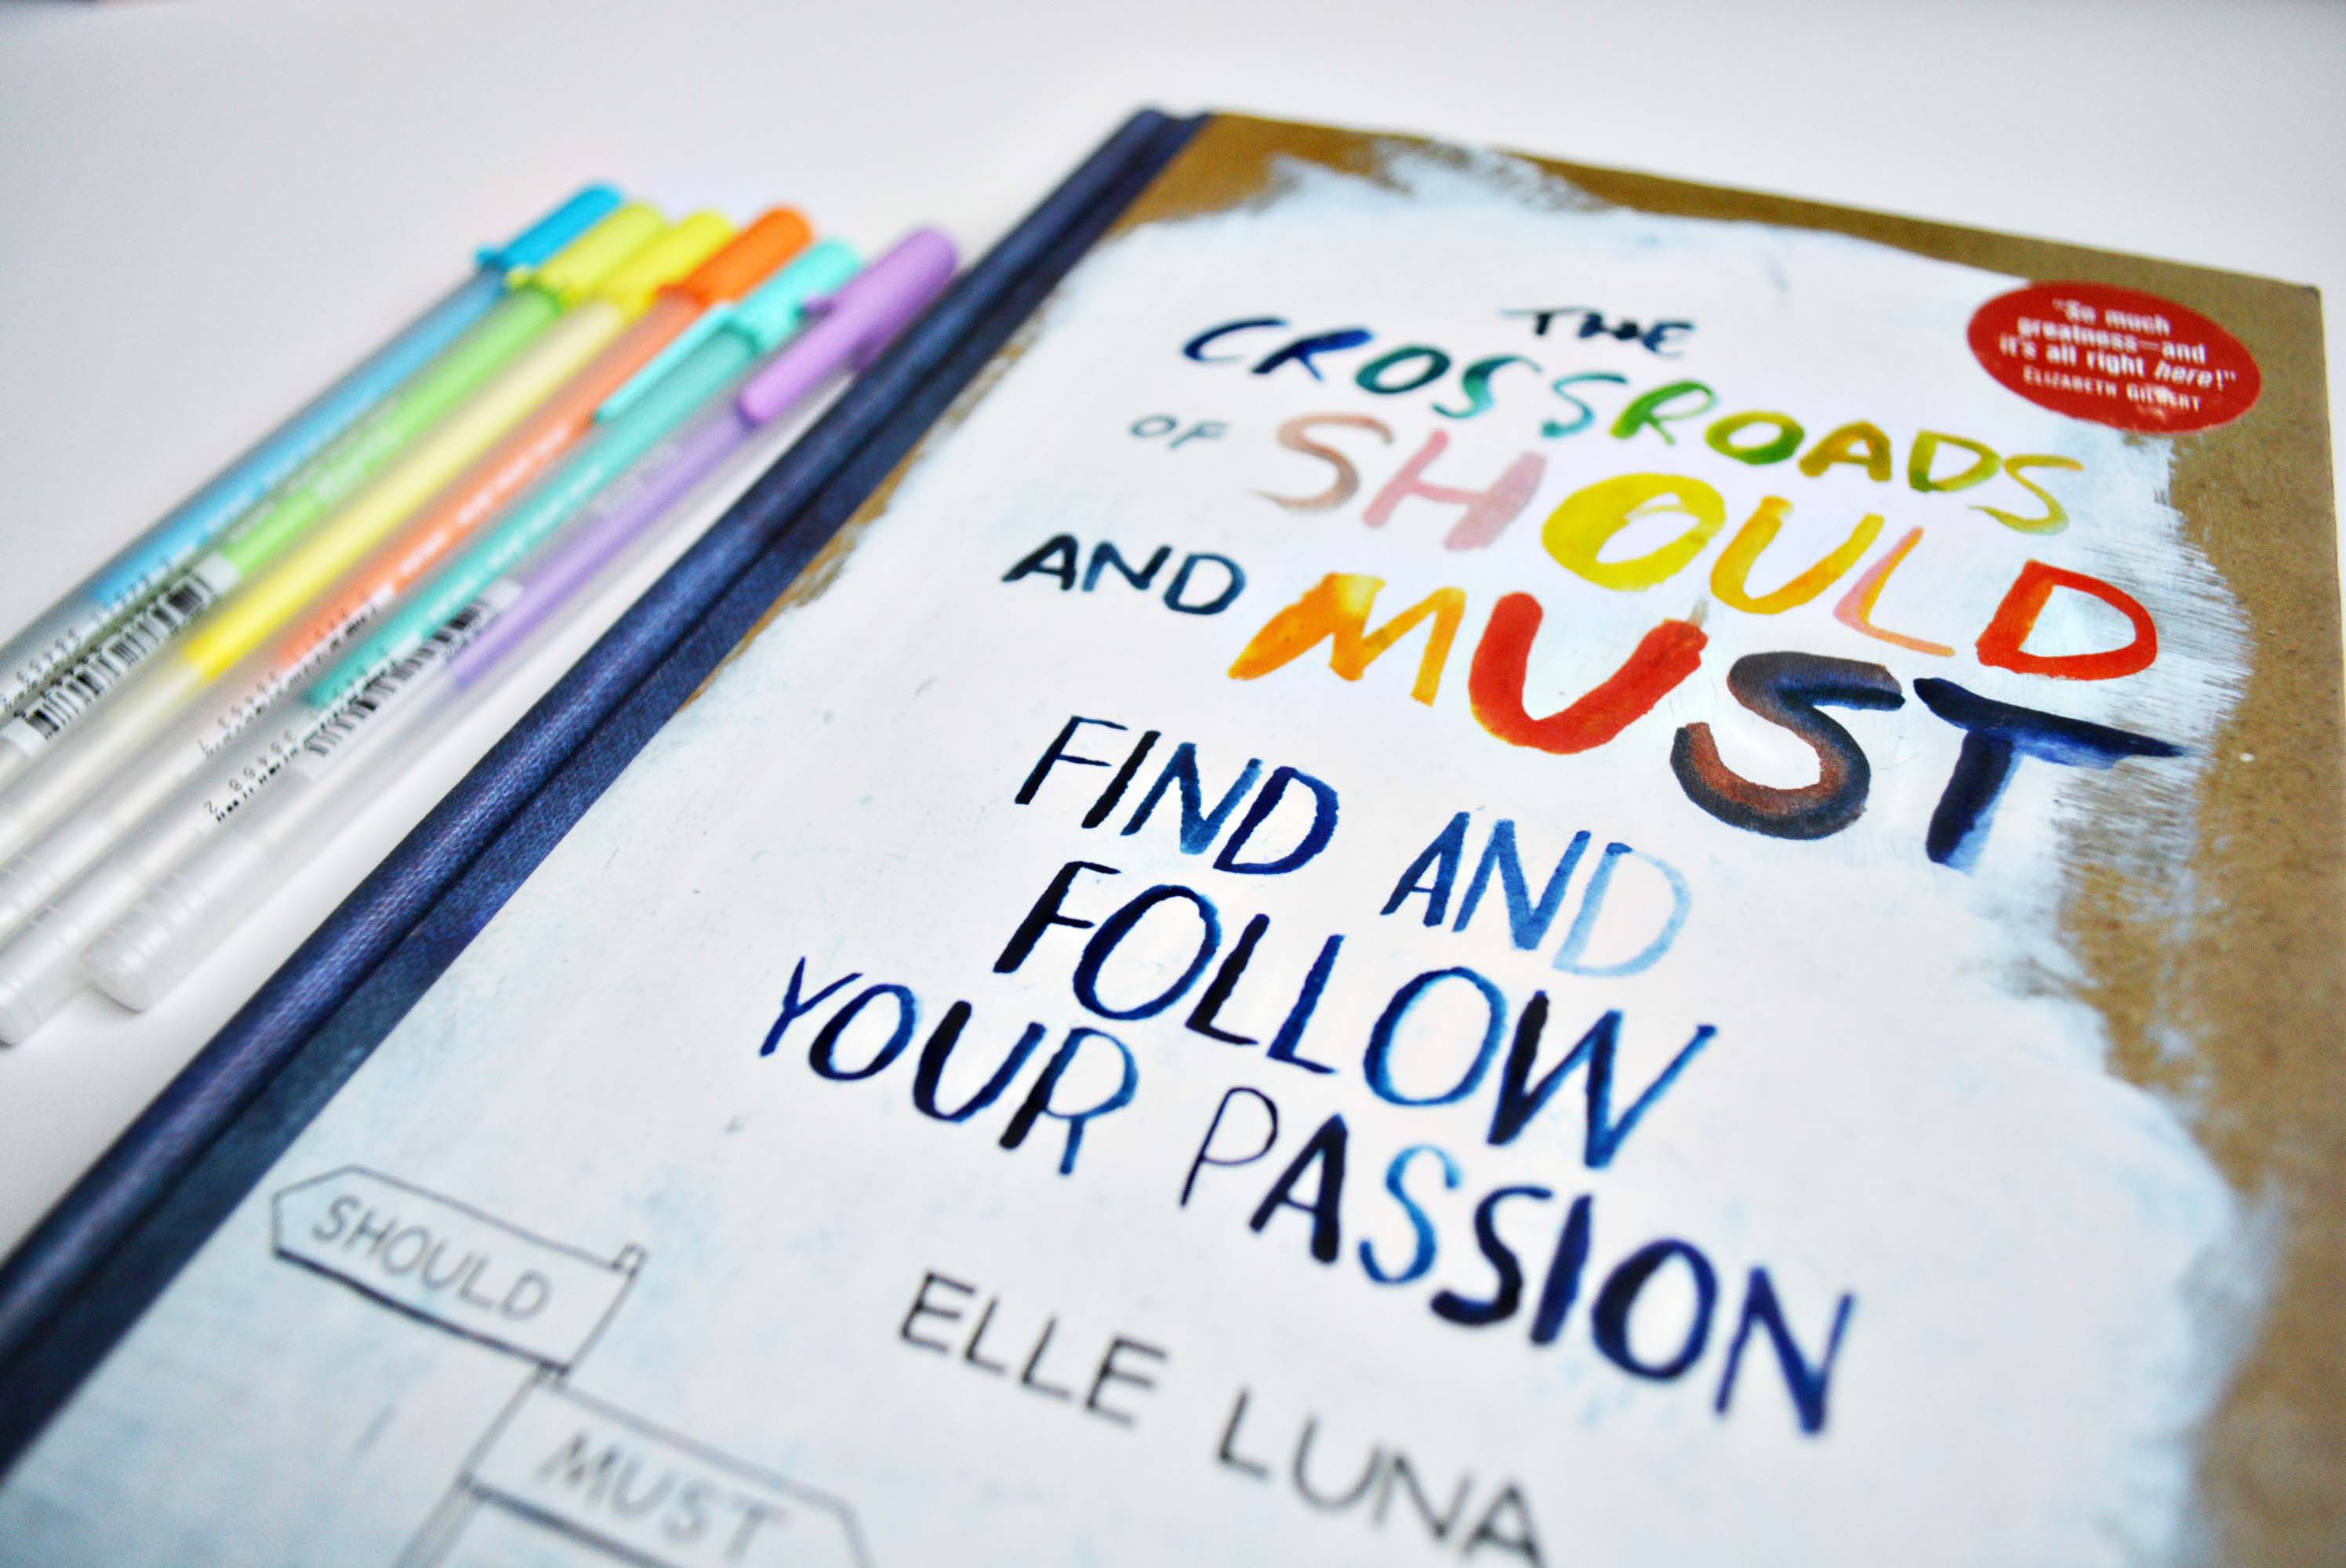 THE
CROSSROADS
OF SHOULD
AND MUST
FIND AND
FOLLOW
YOUR PASSION
ELLE LUNA
"So much
greatness—and
it's all right here!"
ELIZABETH GILBERT
SHOULD
MUST